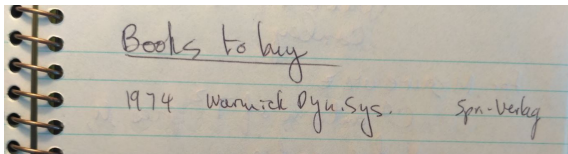 Books to buy
1974 Warwick Dyn. Sys. Spn-Verlag